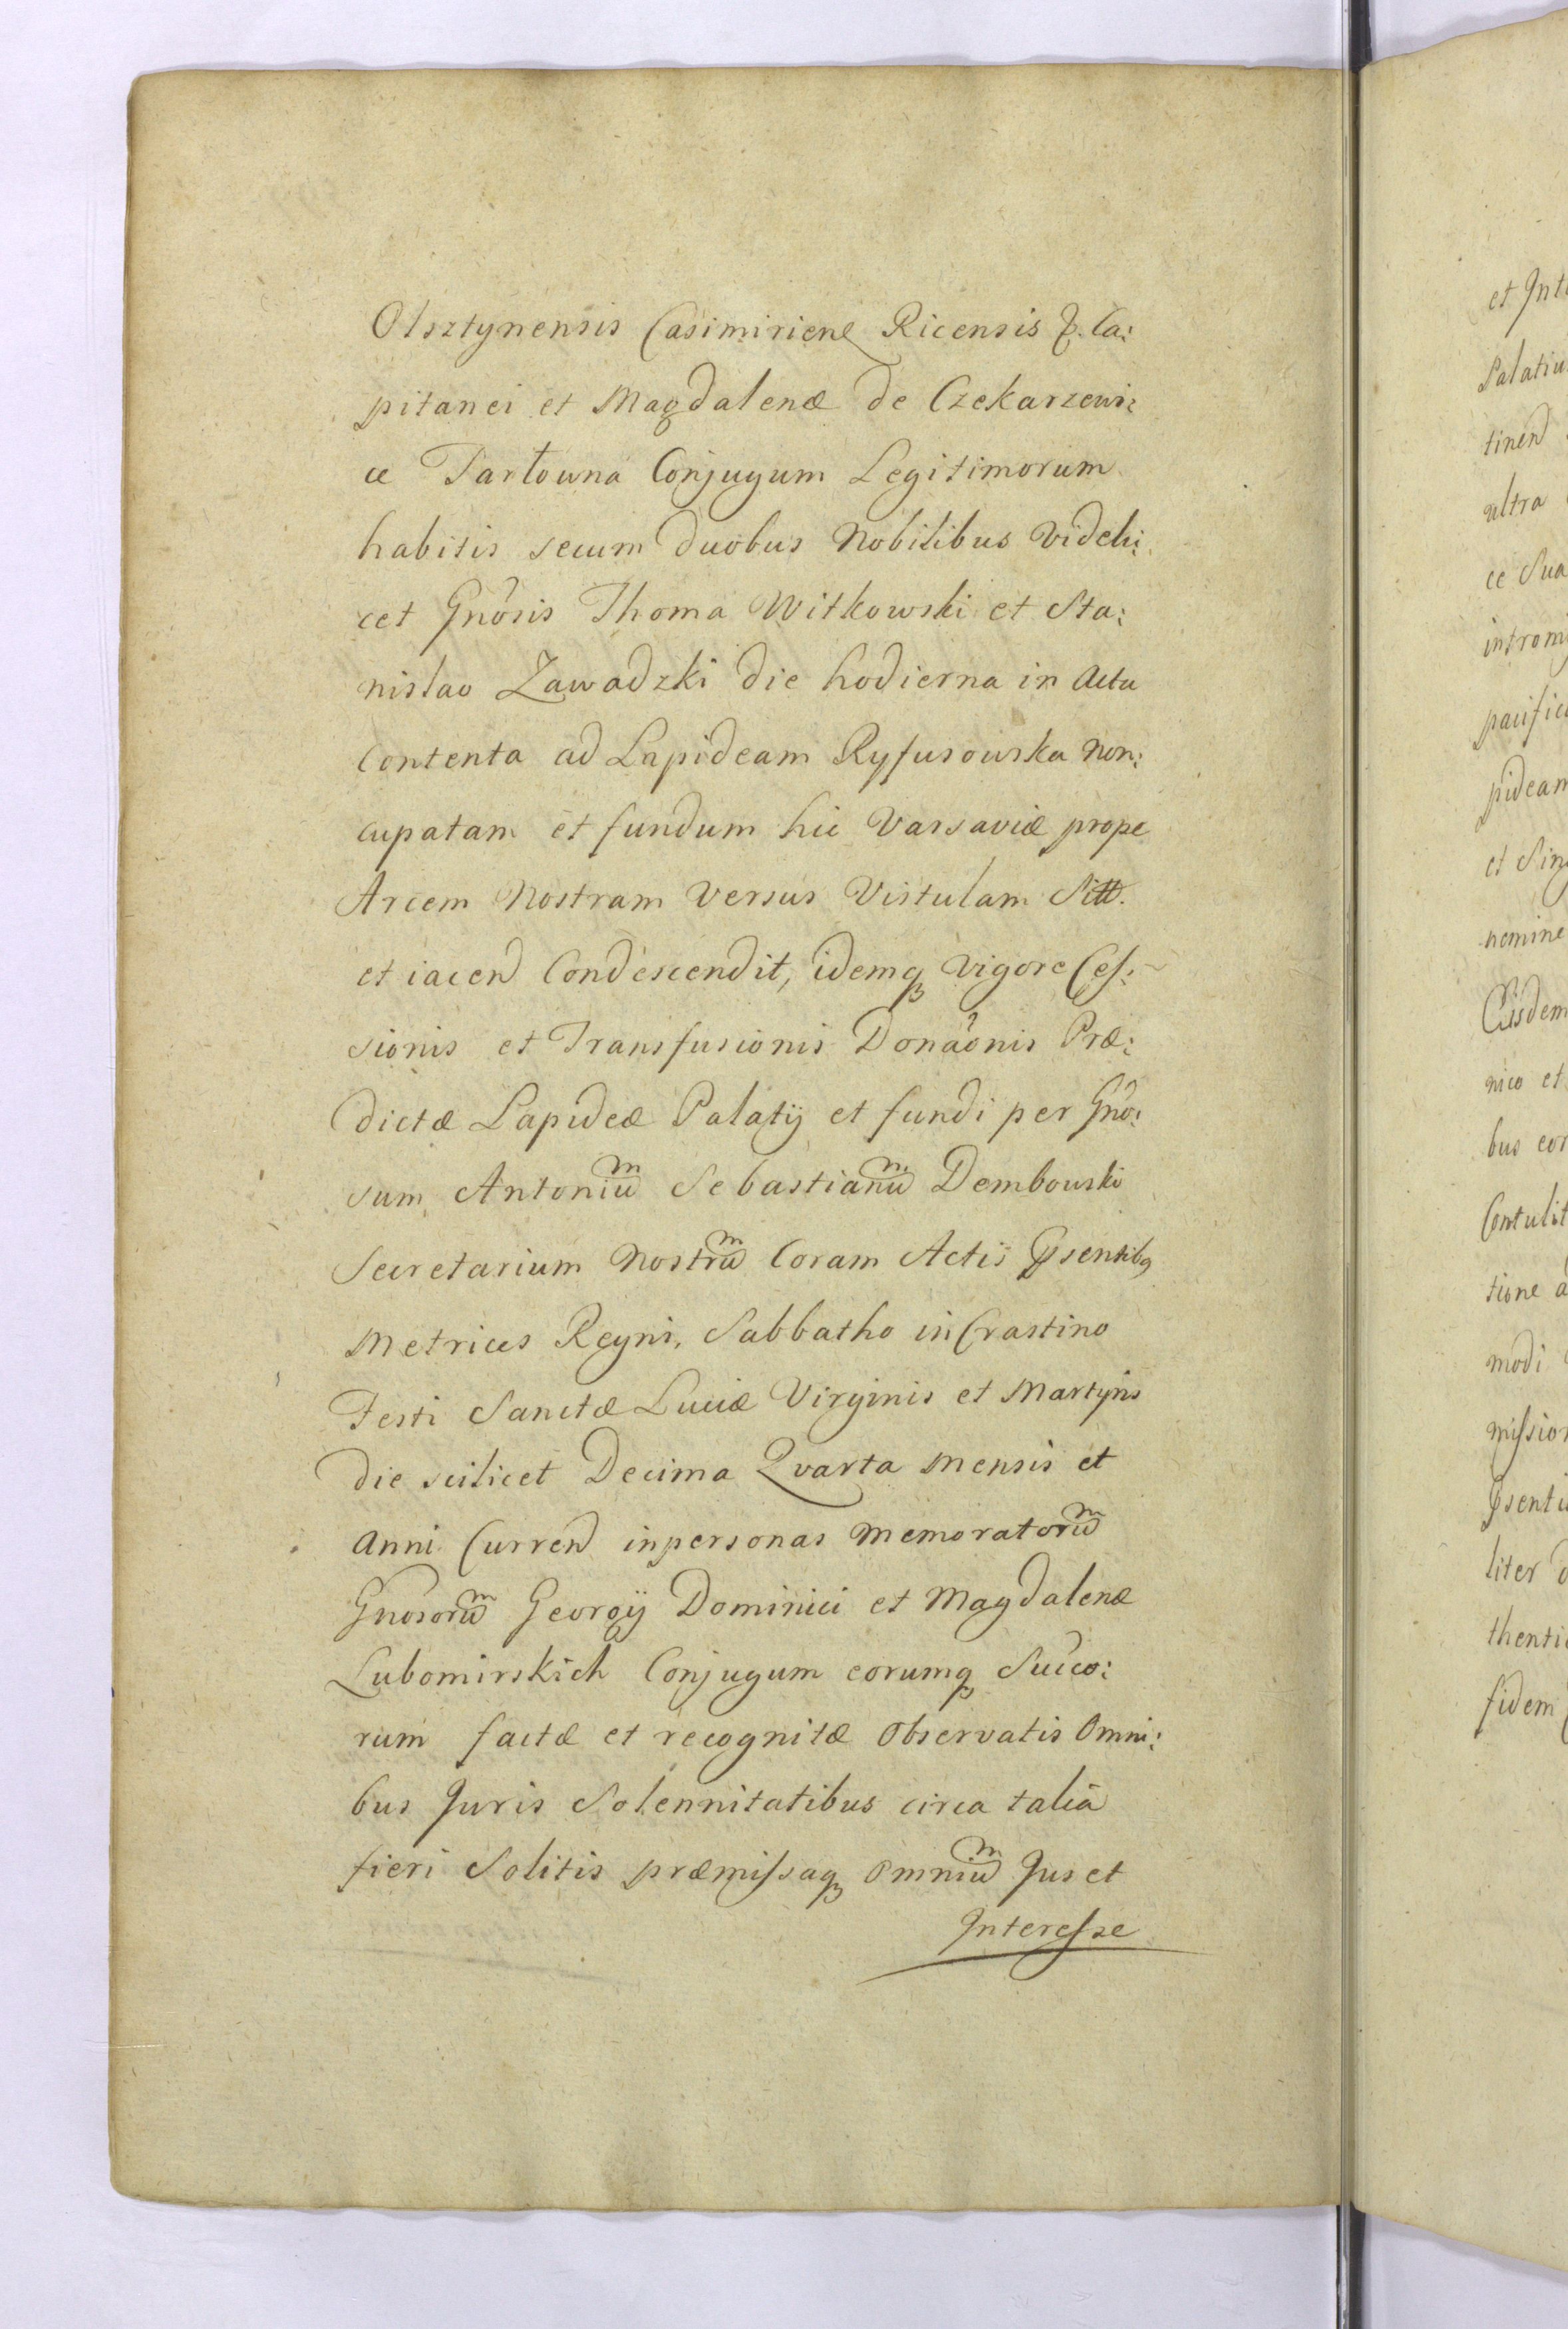 Olsztynensis Casimirien Ricensis &. Ca:
pitanei et Magdalenæ de Czekarzewi:
ce Tarłowna Conjugum Legitimorum
habitis secum duobus Nobilibus Videli:
cet Gnosis Thoma Witkowski et Sta:
nislao Zawadzki die hodierna in Actu
Contenta ad Lapideam Ryfusowska Non:
cupatam et fundum hic Varsaviæ prope
Arcem Nostram Versus Vistulam Sitt.
et iacend Condescendit, idemq Vigore Ces:
sionis et Transfusionis Donaonis Præ:
dictæ Lapideæ Palatij et fundi per Gno:
sum Antonium Sebastianum Dembowski
Secretarium Nostrum Coram Actis Psentibq
Metrices Regni, Sabbatho in Crastino
Festi Sanctæ Luciæ Virginis et Martyris
die scilicet Decima Qvarta Mensis et
Anni Currend in personas Memoratorum
Gnosorum Georgij Dominici et Magdalenæ
Lubomirskich Conjugum eorumq Succo:
rum factæ et recognitæ Observatis Omni:
bus Juris Solennitatibus circa talia
fieri Solitis præmissaq Omnium Jus et
Interesse
et Int
Palatiu
tinend
ultra
ce Sua
intromi
pacific
pideam
et Sing
nomine
Eisdem
nico et
bus eor
Contulit
tione a
modi
mission
Psentiu
liter d
thenti
fidem